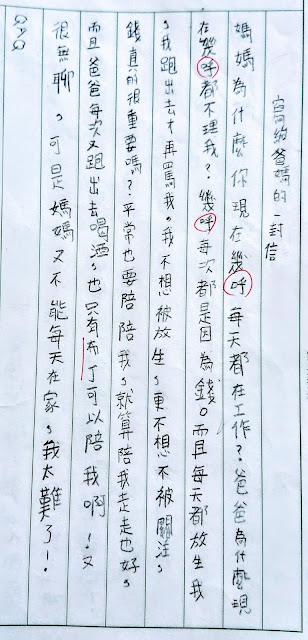 寫給爸媽的一封信
媽媽為什麼你現在幾呼每天都在工作?爸爸為什麼現
在幾呼都不理我?幾呼每次都是因為錢。而且每天都放生我
,我跑出去才再罵我。我不想被放生,更不想不被關注,
錢真的很重要嗎?平常也要陪陪我,就算陪我走走也好。
而且爸爸每次又跑出去喝酒,也只有布丁可以陪我啊!又
很無聊,可是媽媽又不能每天在家,我太難了!
QAQ